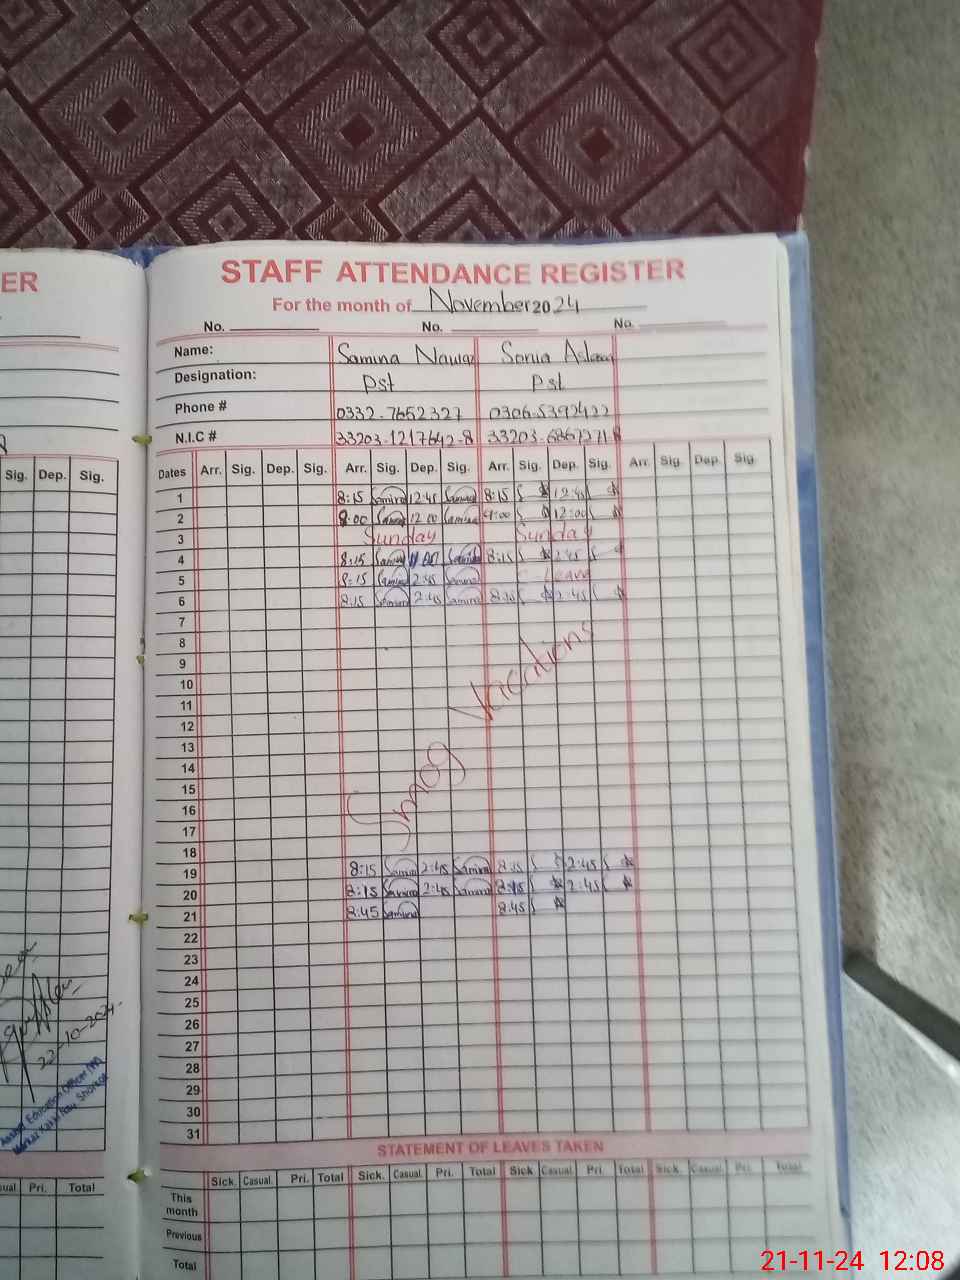 ER
STAFF ATTENDANCE REGISTER
For the month of November 2024
No. No. No.
Name: Samina Sonia
Designation: Pst Pst
Phone # 0332-7652327 0306-5392422
N.I.C # 33203-1217642-8
Sig. Dep. Sig. Dates Arr. Sig. Dep. Sig. Arr. Sig. Dep. Sig. Arr. Sig. Dep. Sig. Arr. Sig. Dep. Sig.
1 8:15 Samina 12:45 Samina 8:15 12:45
2 8:00 Samina 12:00 Samina 12:00
3 Sunday Sunday
4 8:15 Samina Samina 8:15 2:45
5 8:15 Samina 2:45 Samina Leave
6 8:15 Samina 2:45 Samina 8:15 2:45
7
8
9
10
11
12
13
14
15
16
17
18
Smog Vacations
19 8:15 Samina 2:45 Samina 8:15 2:45
20 8:15 Samina 2:45 Samina 8:15 2:45
21 8:45 Samina 8:45
22
23
24
25
26
27
28
29
30
31
22-10-2024
STATEMENT OF LEAVES TAKEN
Pri. Total Sick. Casual. Pri. Total Sick. Casual. Pri. Total Sick Casual. Pri. Total Sick. Casual. Pri. Total
This month
Previous
Total
21-11-24 12:08